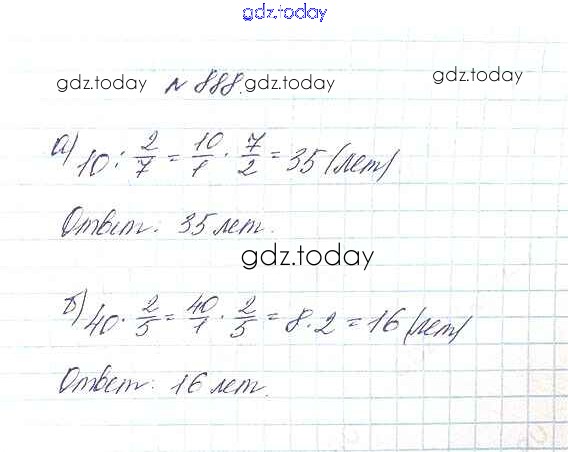 gdz.today
gdz.today № 888. gdz.today gdz.today
а) 10 : 2/7 = 10/1 · 7/2 = 35 (лет)
Ответ: 35 лет.
gdz.today
б) 40 · 2/5 = 40/1 · 2/5 = 8 · 2 = 16 (лет)
Ответ: 16 лет.